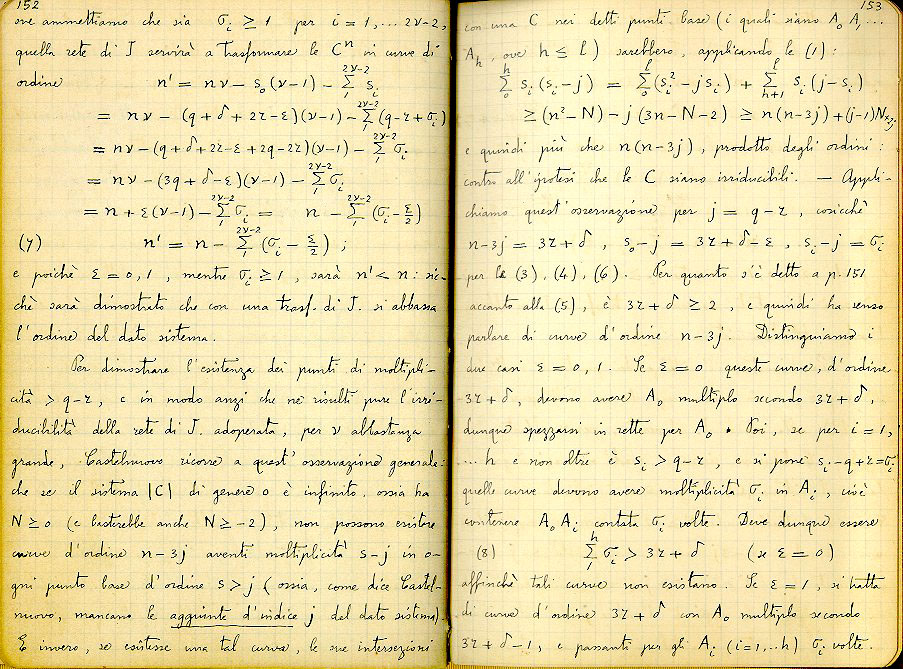 152
ove ammettiamo che sia σ_i ≥ 1 per i = 1, ... 2ν-2,
quella rete di J servirà a trasformare le C^n in curve di
ordine n' = nν - s_0(ν-1) - Σ_1^{2ν-2} s_i
= nν - (q+δ+2r-ε)(ν-1) - Σ_1^{2ν-2} (q-r+σ_i)
= nν - (q+δ+2r-ε+2q-2r)(ν-1) - Σ_1^{2ν-2} σ_i
= nν - (3q+δ-ε)(ν-1) - Σ_1^{2ν-2} σ_i
= n + ε(ν-1) - Σ_1^{2ν-2} σ_i = n - Σ_1^{2ν-2} (σ_i - ε/2)
(7) n' = n - Σ_1^{2ν-2} (σ_i - ε/2) ;
e poichè ε = 0, 1, mentre σ_i ≥ 1, sarà n' < n : sic-
chè sarà dimostrato che con una trasf. di J. si abbassa
l'ordine del dato sistema.
Per dimostrare l'esistenza dei punti di moltipli-
cità > q-r, e in modo anzi che ne risulti pure l'irri-
ducibilità della rete di J. adoperata, per ν abbastanza
grande, Castelnuovo ricorre a quest'osservazione generale:
che se il sistema |C| di genere 0 è infinito, ossia ha
N ≥ 0 (e basterebbe anche N ≥ -2), non possono esistere
curve d'ordine n-3j aventi moltiplicità s-j in o-
gni punto base d'ordine s > j (ossia, come dice Castel-
nuovo, mancano le aggiunte d'indice j del dato sistema).
E invero, se esistesse una tal curva, le sue intersezioni
153
con una C nei detti punti base (i quali siano A_0 A_1 ...
A_h, ove h ≤ l) sarebbero, applicando le (1):
Σ_0^h s_i(s_i-j) = Σ_0^l (s_i^2 - j s_i) + Σ_{h+1}^l s_i(j-s_i)
≥ (n^2-N) - j(3n-N-2) ≥ n(n-3j) + (j-1)N+2j
e quindi più che n(n-3j), prodotto degli ordini:
contro all'ipotesi che le C siano irriducibili. — Appli-
chiamo quest'osservazione per j = q-r, cosicchè
n-3j = 3r+δ, s_0-j = 3r+δ-ε, s_i-j = σ_i
per le (3), (4), (6). Per quanto s'è detto a p. 151
accanto alla (5), è 3r+δ ≥ 2, e quindi ha senso
parlare di curve d'ordine n-3j. Distinguiamo i
due casi ε = 0, 1. Se ε = 0 queste curve, d'ordine
3r+δ, devono avere A_0 multiplo secondo 3r+δ,
dunque spezzarsi in rette per A_0. Poi, se per i = 1,
... h e non oltre è s_i > q-r, e si pone s_i-q+r = σ_i
quelle curve devono avere moltiplicità σ_i in A_i, cioè
contenere A_0 A_i contata σ_i volte. Deve dunque essere
(8) Σ_1^h σ_i > 3r+δ (se ε = 0)
affinchè tali curve non esistano. Se ε = 1, si tratta
di curve d'ordine 3r+δ con A_0 multiplo secondo
3r+δ-1, e passanti per gli A_i (i=1,..h) σ_i volte.